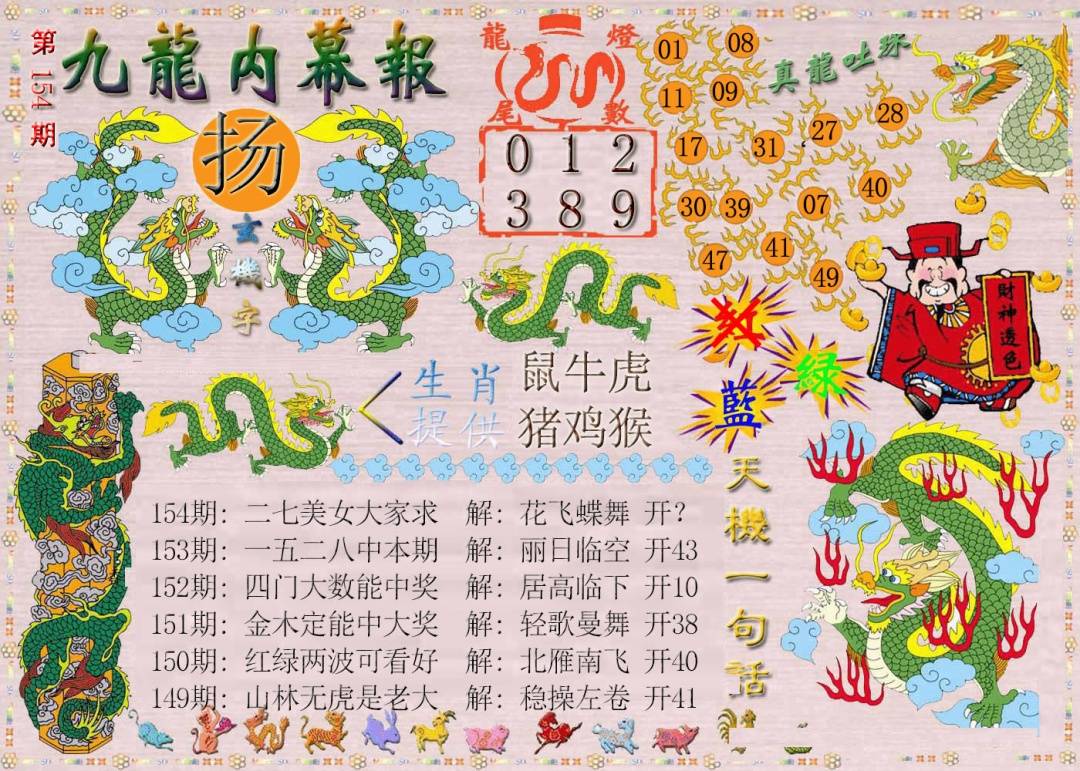 第154期
九龍内幕報
扬
玄機字
龍燈
尾數
0 1 2
3 8 9
真龍吐珠
01 08
11 09
17 31 27 28
30 39 07 40
47 41 49
紅
綠
藍
財神透色
生肖 鼠牛虎
提供 猪鸡猴
天機一句話
154期：二七美女大家求 解：花飞蝶舞 开？
153期：一五二八中本期 解：丽日临空 开43
152期：四门大数能中奖 解：居高临下 开10
151期：金木定能中大奖 解：轻歌曼舞 开38
150期：红绿两波可看好 解：北雁南飞 开40
149期：山林无虎是老大 解：稳操左卷 开41